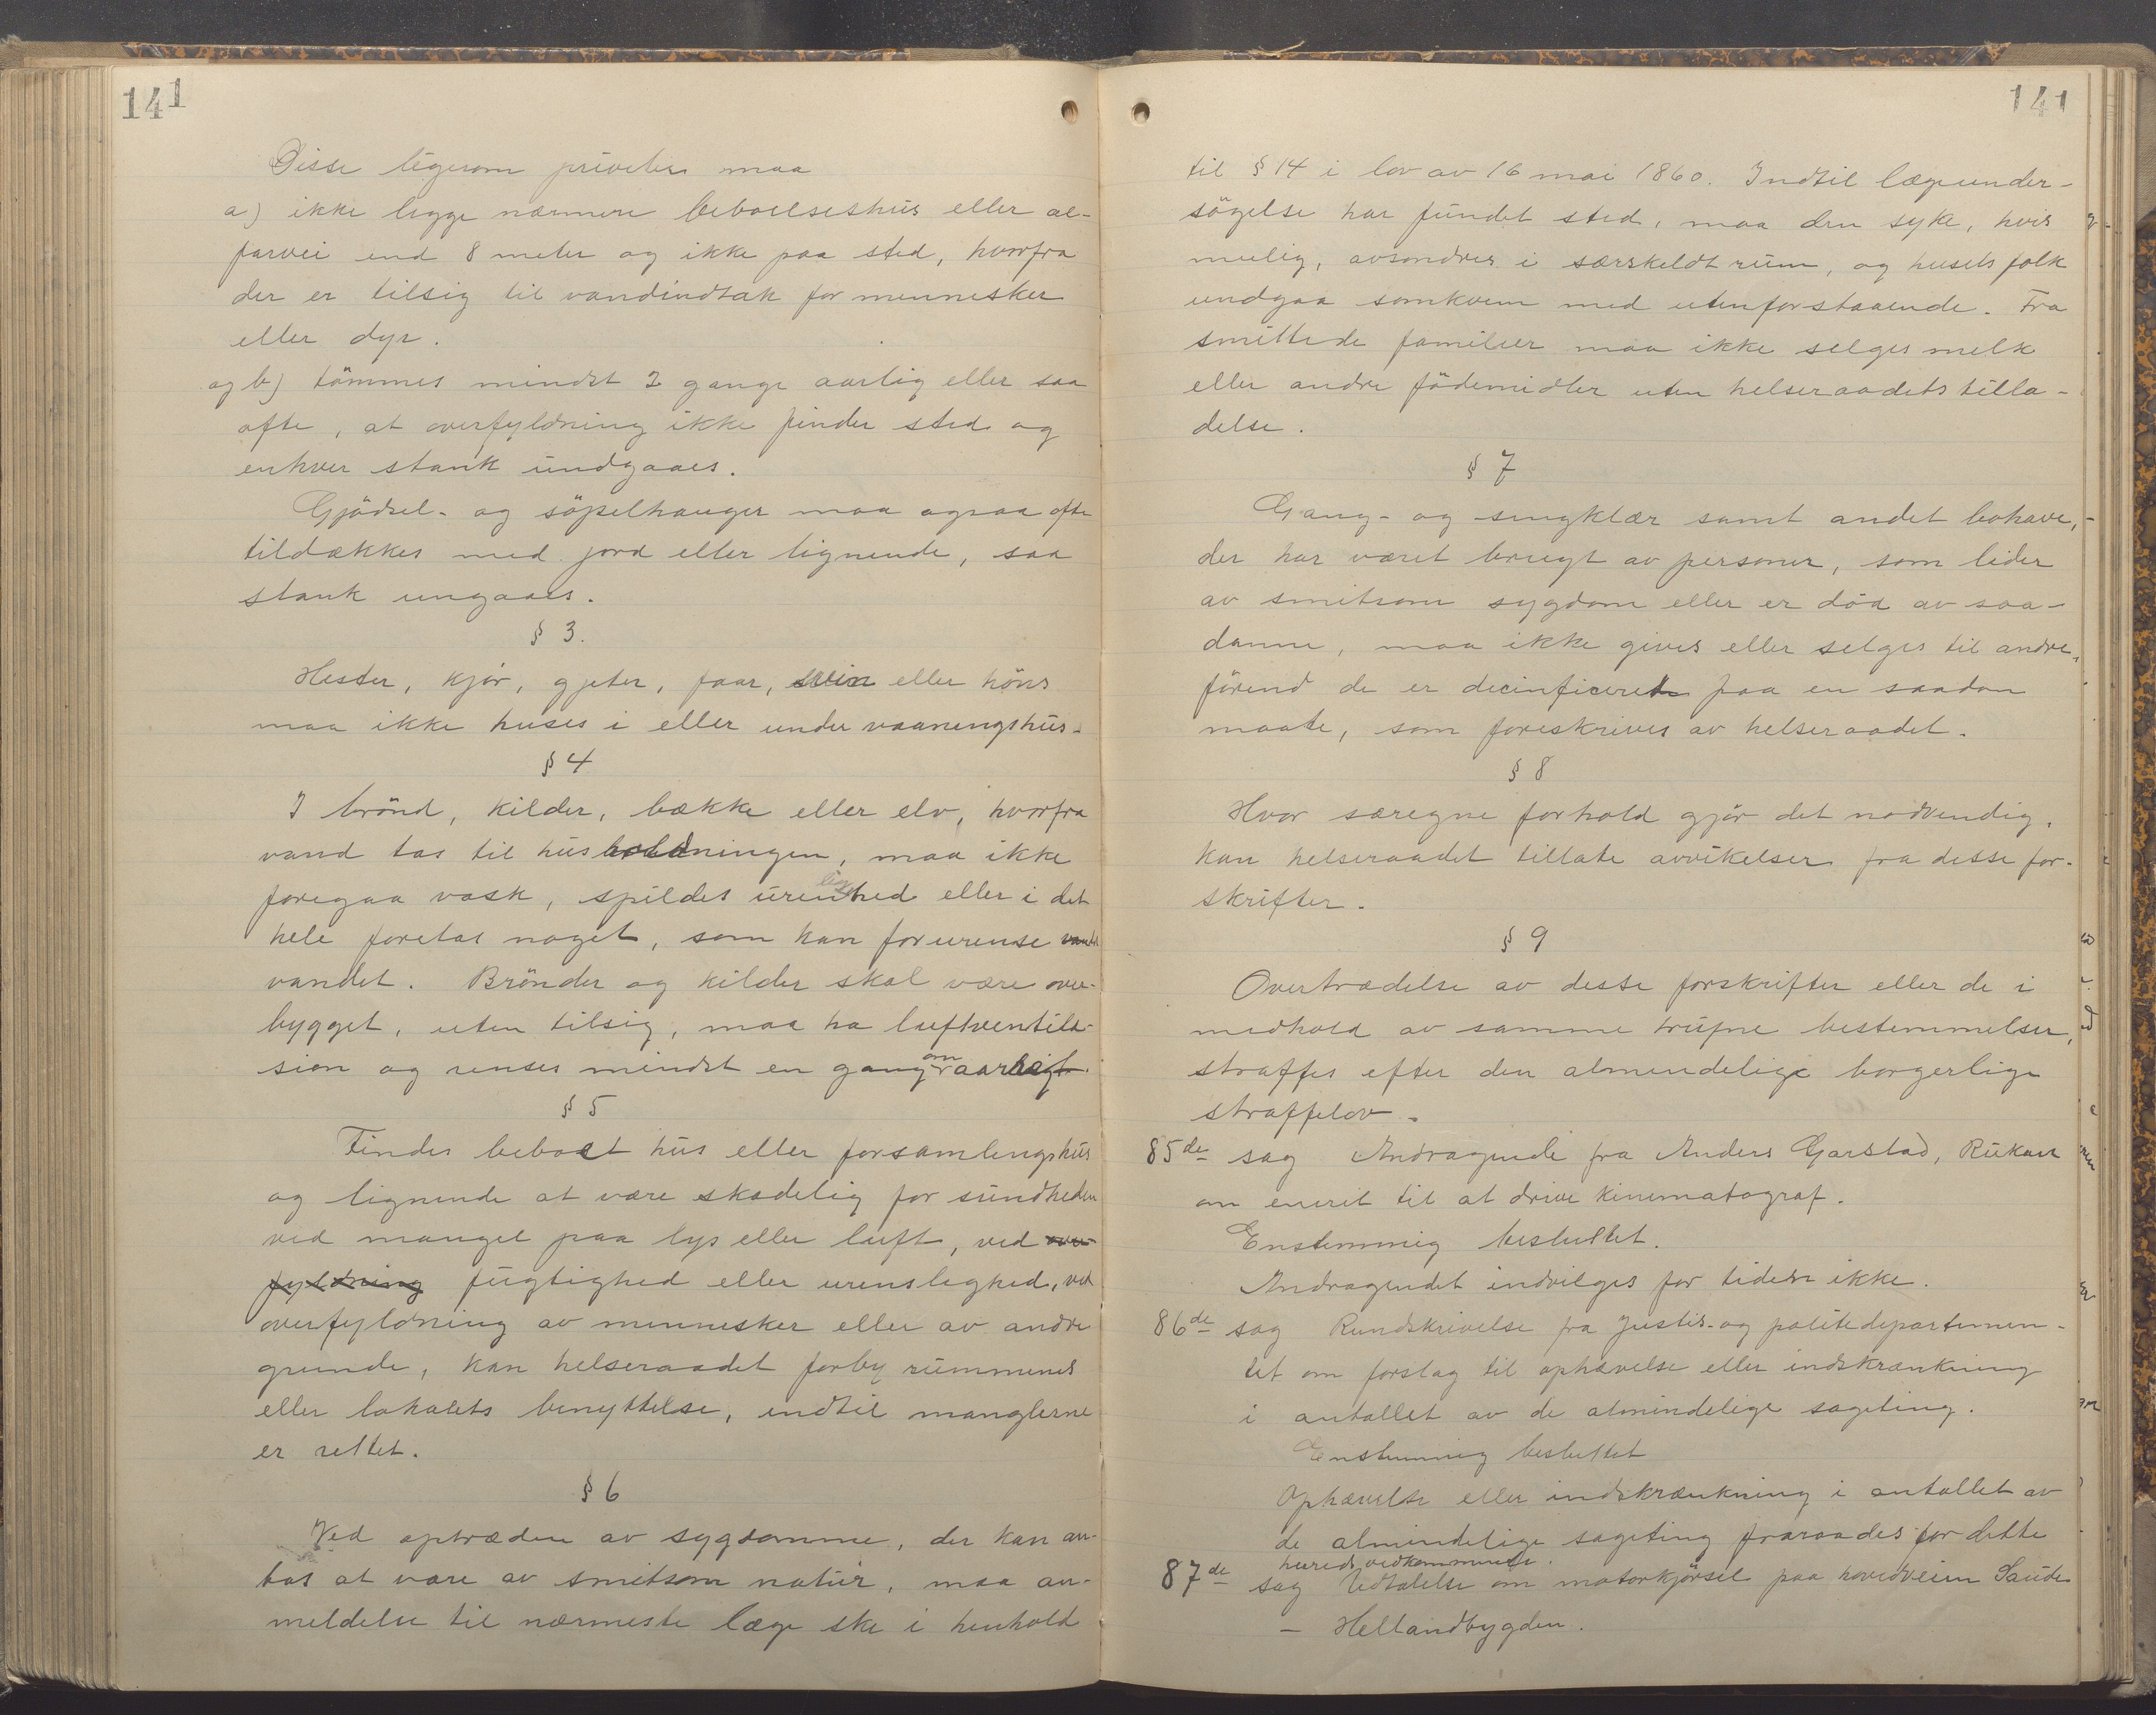 141
Disse ligesom priveter maa
a) ikke ligge nærmere beboelseshus eller al-
farvei end 8 meter og ikke paa sted, hvorfra
der er tilsig til vandindtak for mennesker
eller dyr.
og b) tömmes mindst 2 gange aarlig eller saa
ofte, at overfyldning ikke finder sted og
enhver stank undgaaes.
Gjödsel- og söpelhauger maa ogsaa ofte
tildækkes med jord eller lignende, saa
stank ungaaes.
§ 3.
Hester, kjör, gjeter, faar, svin eller höns
maa ikke huses i eller under vaaningshus.
§ 4
I brönd, kilder, bække eller elv, hvorfra
vand tas til husholdningen, maa ikke
foregaa vask, spildes urenslighed eller i det
hele foretas noget, som kan forurense vandet
vandet. Brönder og kilder skal være over-
bygget, uten tilsig, maa ha luftventila-
sion og renses mindst en gang om aaret.
§ 5
Findes beboet hus eller forsamlingshus
og lignende at være skadelig for sundheden
ved mangel paa lys eller luft, ved over-
fyldning fugtighed eller urenslighed, ved
overfyldning av mennesker eller av andre
grunde, kan helseraadet forby rummenes
eller lokalets benyttelse, indtil manglerne
er rettet.
§ 6
Ved optræden av sygdomme, der kan an-
tas at være av smitsom natur, maa an-
meldelse til nærmeste læge ske i henhold
141
til § 14 i lov av 16 mai 1860. Indtil lægeunder-
sögelse har fundet sted, maa den syke, hvis
mulig, avsondres i særskeldt rum, og husets folk
undgaa somkvem med utenforstaaende. Fra
smittede familier maa ikke selges melk
eller andre födemidler uten helseraadets tilla-
delse.
§ 7
Gang- og sengklær samt andet bohave,
der har været brugt av personer, som lider
av smitsom sygdom eller er död av saa-
danne, maa ikke gives eller selges til andre,
förend de er decinficeret paa en saadan
maate, som foreskrives av helseraadet.
§ 8
Hvor særegne forhold gjör det nödvendig,
kan helseraadet tillate avvikelser fra desse for-
skrifter.
§ 9
Overtrædelse av desse forskrifter eller de i
medhold av samme trufne bestemmelser,
straffes efter den almendelige borgerlige
straffelov.
85de sag Andragende fra Anders Garstad, Rukan
om enerit til at drive kinematograf.
Enstemmig besluttet.
Andragendet indvilges for tiden ikke.
86de sag Rundskrivelse fra Justis- og politidepartemen-
tet om forslag til ophævelse eller indskrænkning
i antallet av de almindelige sageting.
Enstemmig besluttet
Ophævelse eller indskrænkning i antallet av
de almindelige sageting fraraades for dette
hereds vedkommende.
87de sag Udtalelse om motorkjörsel paa hovedveien Saude
– Hellandbygden.